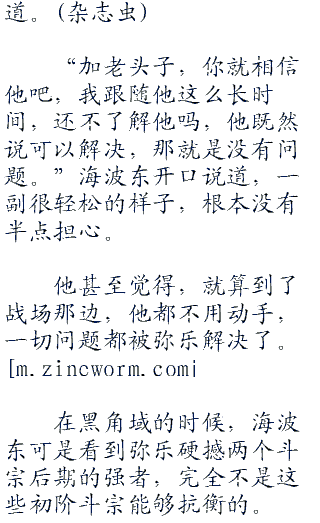 道。(杂志虫)
“加老头子，你就相信
他吧，我跟随他这么长时
间，还不了解他吗，他既然
说可以解决，那就是没有问
题。”海波东开口说道，一
副很轻松的样子，根本没有
半点担心。
他甚至觉得，就算到了
战场那边，他都不用动手，
一切问题都被弥乐解决了。
[m.zincworm.com|
在黑角域的时候，海波
东可是看到弥乐硬撼两个斗
宗后期的强者，完全不是这
些初阶斗宗能够抗衡的。